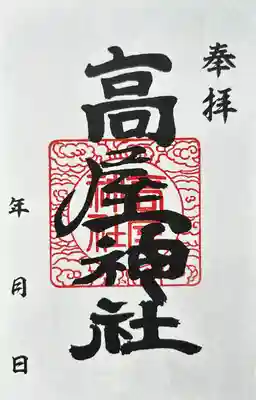 奉拝
高屋神社
年 月 日